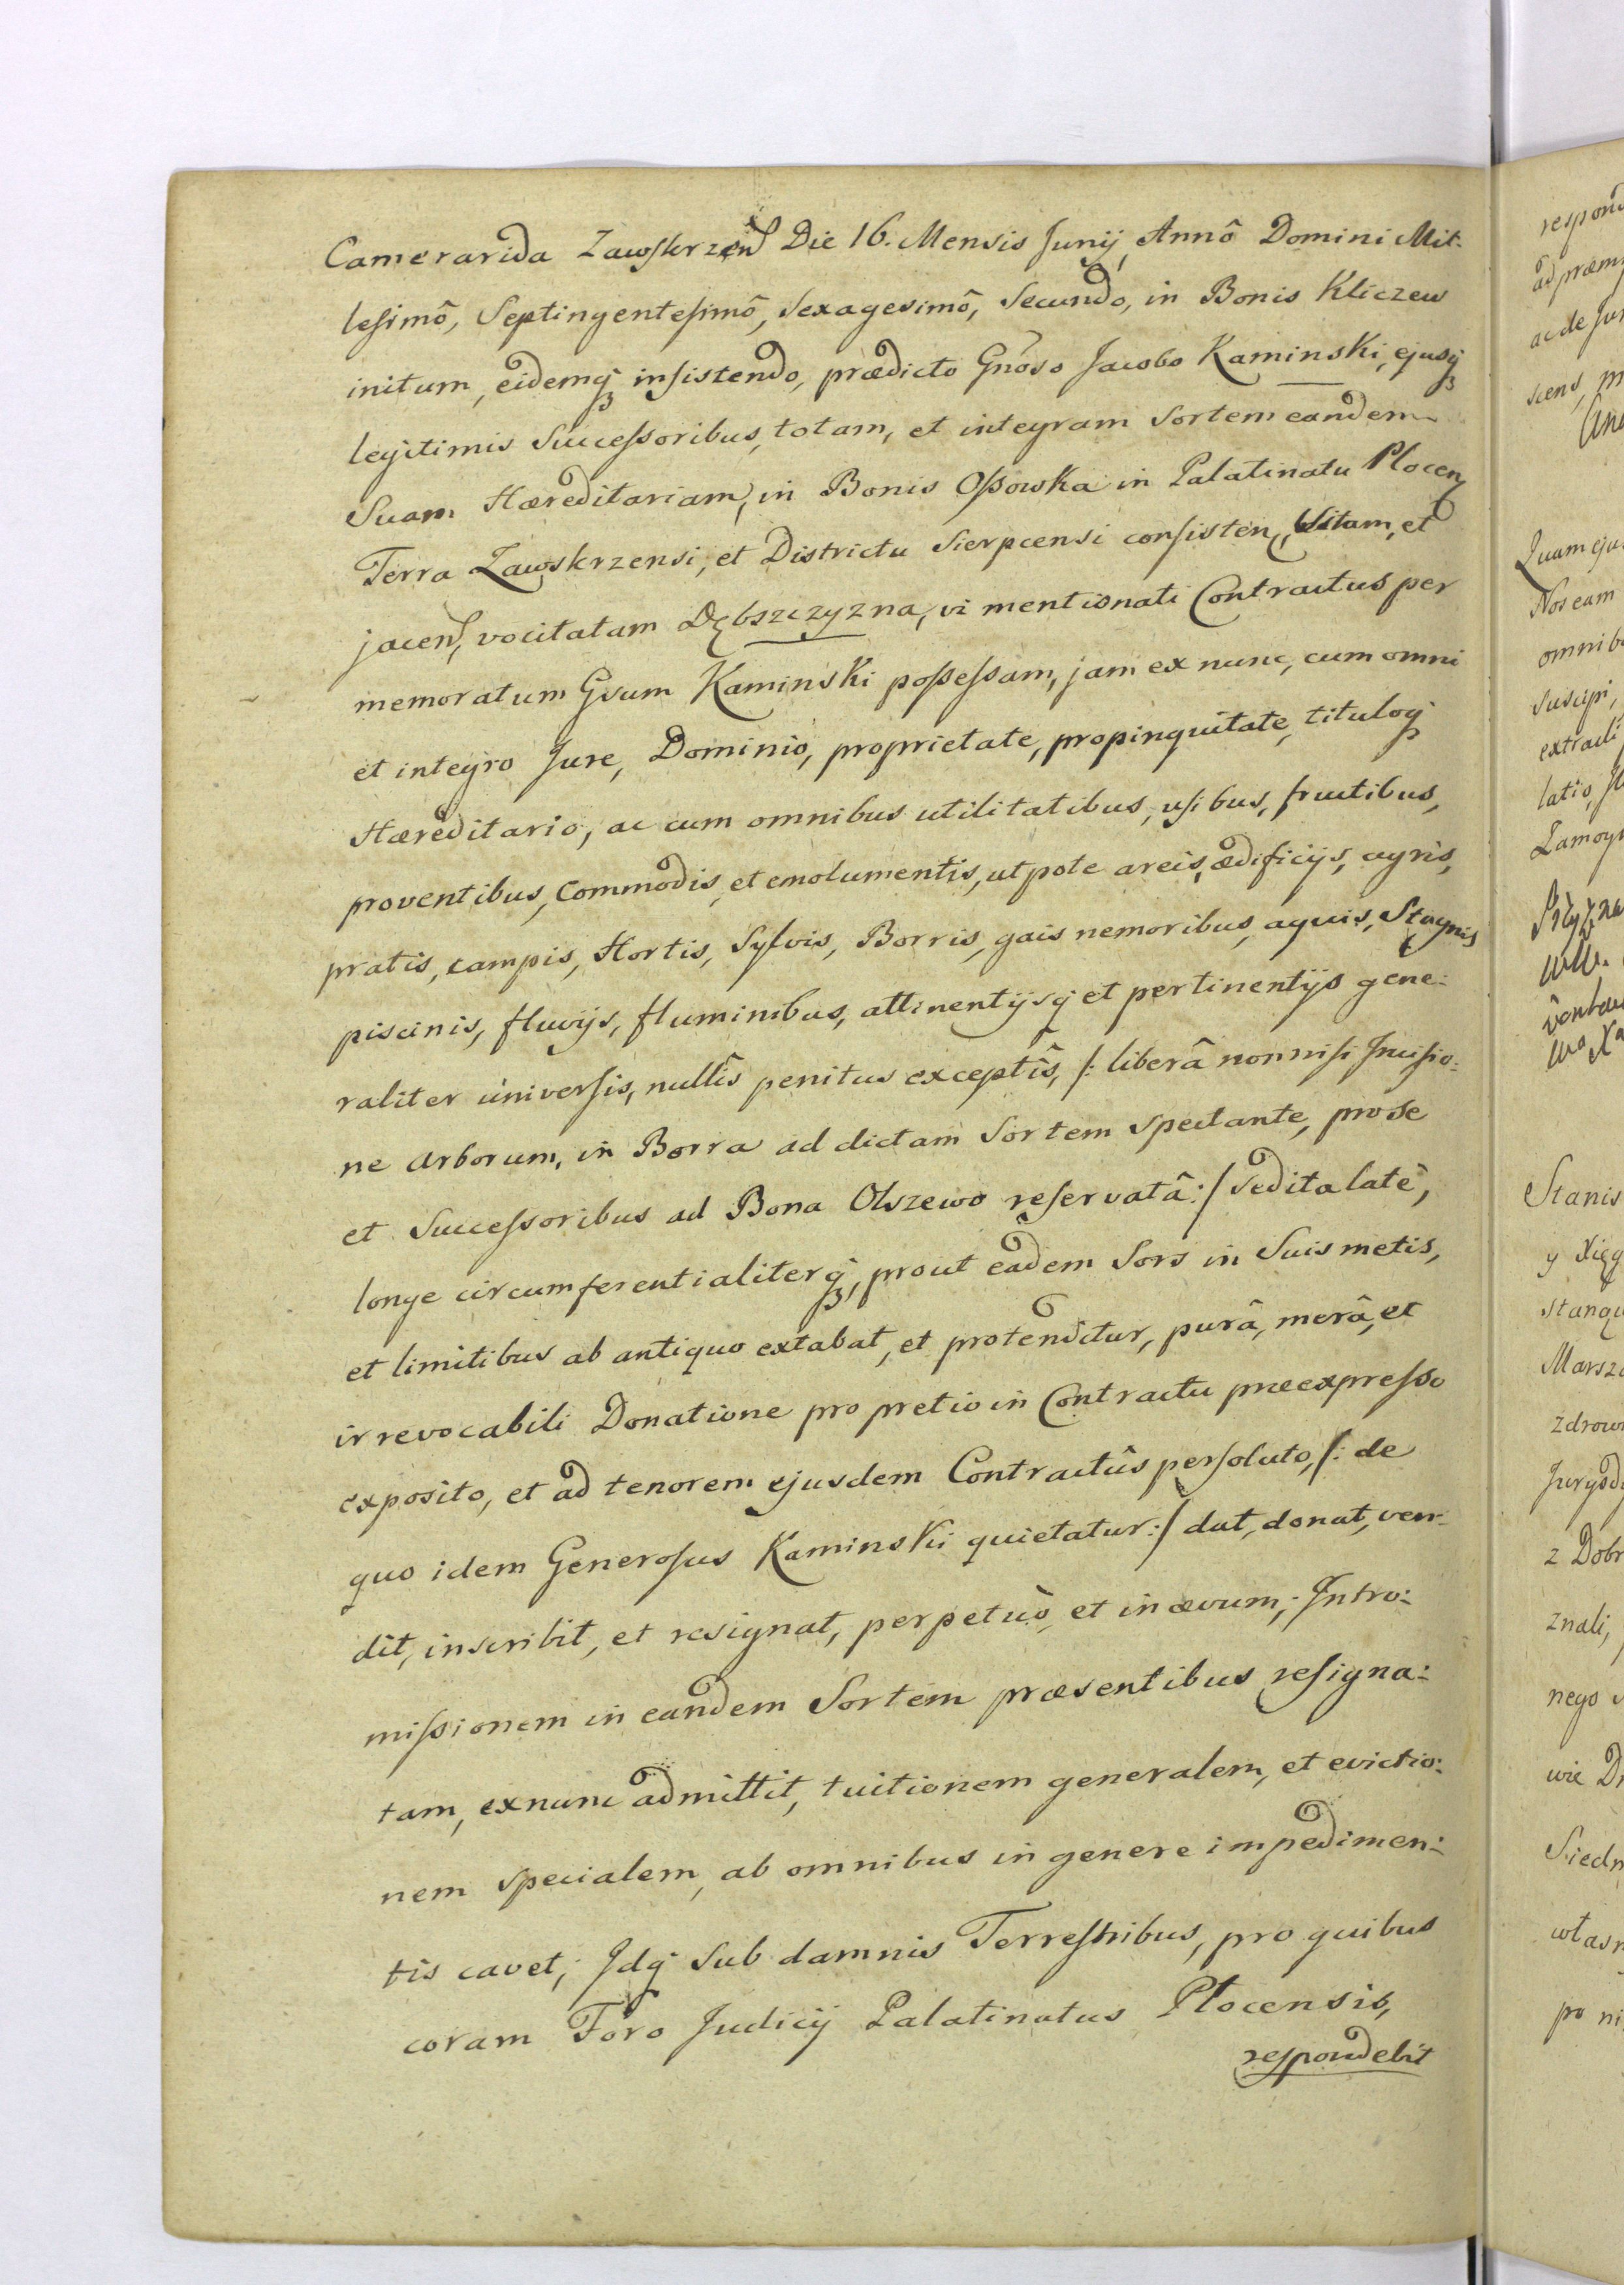 Camerarida Zawskrzen Die 16. Mensis Junij, Annô Domini Mil-
lesimô, Septingentesimô, Sexagesimô, Secundo, in Bonis Kliczew
initum, eidemq insistendo, prædicto Gnoso Jacobo Kaminski, ejusq
legitimis Successoribus, totam, et integram Sortem eandem
Suam Hæreditariam, in Bonis Ossowka in Palatinatu Plocen
Terra Zawskrzensi, et Districtu Sierpcensi consisten, Sitam, et
jacen, vocitatam Dębszczyzna, vi mentionati Contractus per
memoratum Gsum Kaminski possessam, jam ex nunc, cum omni
et integro Jure, Dominio, proprietate, propinquitate, tituloq
Hæreditario, ac cum omnibus utilitatibus, usibus, fructibus,
proventibus, Commodis, et emolumentis, utpote areis, ædificijs, agris,
pratis, campis, Hortis, Sylvis, Borris, gais nemoribus, aquis, Stagnis
piscinis, fluvijs, fluminibus, attinentijsq et pertinentijs gene:
raliter universis, nullîs penitus exceptîs, /: liberâ nonnisi Incisio:
ne Arborum, in Borra ad dictam Sortem Spectante, pro se
et Successoribus ad Bona Olszewo reservatâ :/ Sed ita latè,
longe circumferentialiterq, prout eadem Sors in Suis metis,
et limitibus ab antiquo extabat, et protenditur, purâ, merâ, et
irrevocabili Donatione pro pretio in Contractu præexpresso
exposito, et ad tenorem ejusdem Contractûs persoluto, /: de
quo idem Generosus Kaminski quietatur :/ dat, donat, ven-
dit, inscribit, et resignat, perpetuò, et in ævum; Intro:
missionem in eandem Sortem præsentibus resigna:
tam, ex nunc admittit, tuitionem generalem, et evictio:
nem specialem, ab omnibus in genere impedimen:
tis cavet, Idq Sub damnis Terrestribus, pro quibus
coram Foro Judicij Palatinatus Plocensis,
respondebit
respon
ad præm
ac de Jur
scens, m
Quam eju
Nos eam
omnib
suscipi,
extradi
latio,
Zamoy
Stanis
y Xięg
stanq
Marsz
zdrow
Jurysd
z Dobr
znali,
nego
wie D
Siedm
własn
po ni